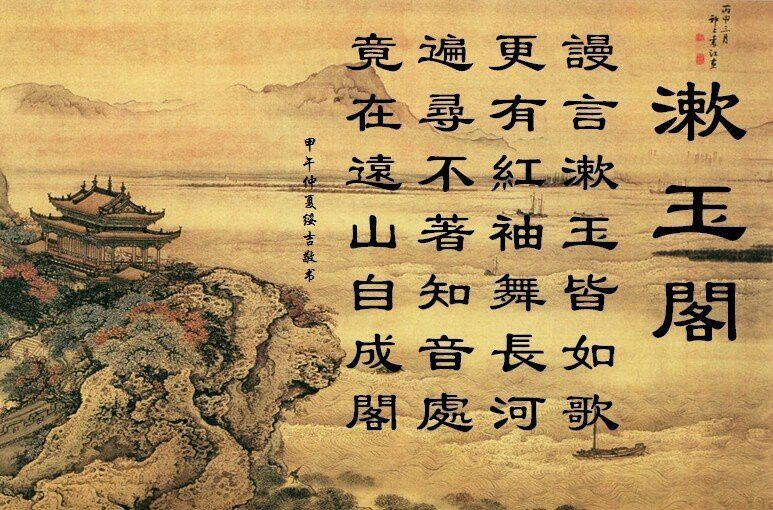 漱玉閣
謾言漱玉皆如歌
更有紅袖舞長河
遍尋不著知音處
竟在遠山自成閣
甲午仲夏绥吉敬书
丙申三月